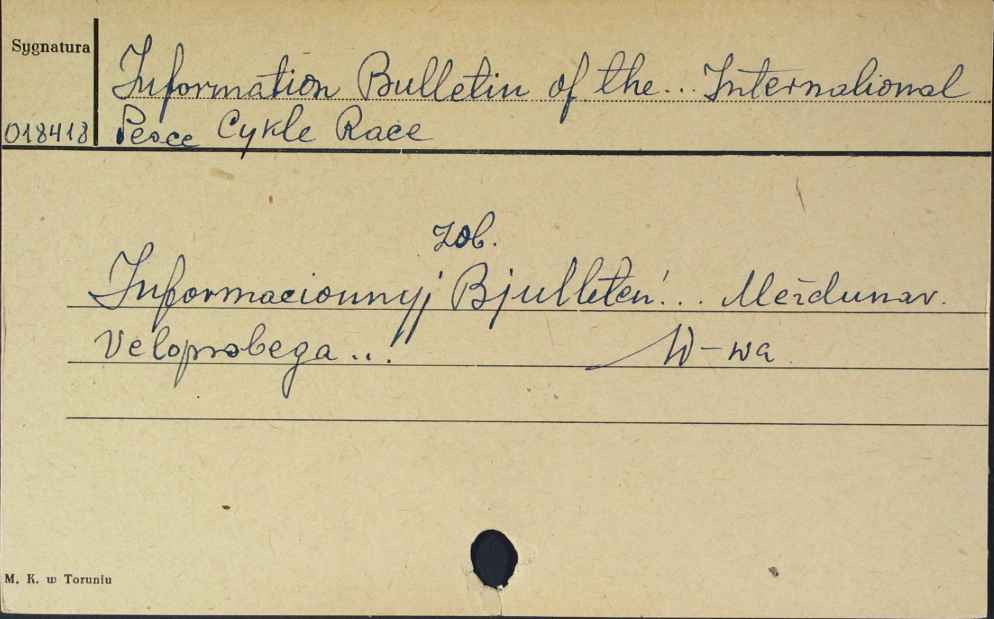 Sygnatura
Information Bulletin of the... International
018418
Peace Cykle Race
zob.
Informacionnyj Bjulleten'... Meždunar.
Veloprobega...
W-wa
M. K. w Toruniu